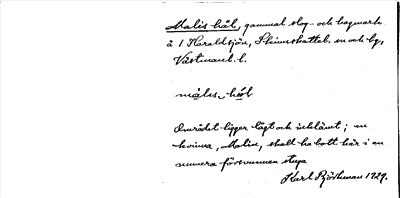 Malis hål, gammal slog- och hagmark
å 1 Haraldsjön, Skinnskatteb. sn och bg,
Västmanl. l.
mális hål
Området ligger lågt och inklämt; en
kvinna, Malin, skall ha bott här i en
numera försvunnen stuga
Karl Björkman 1929.